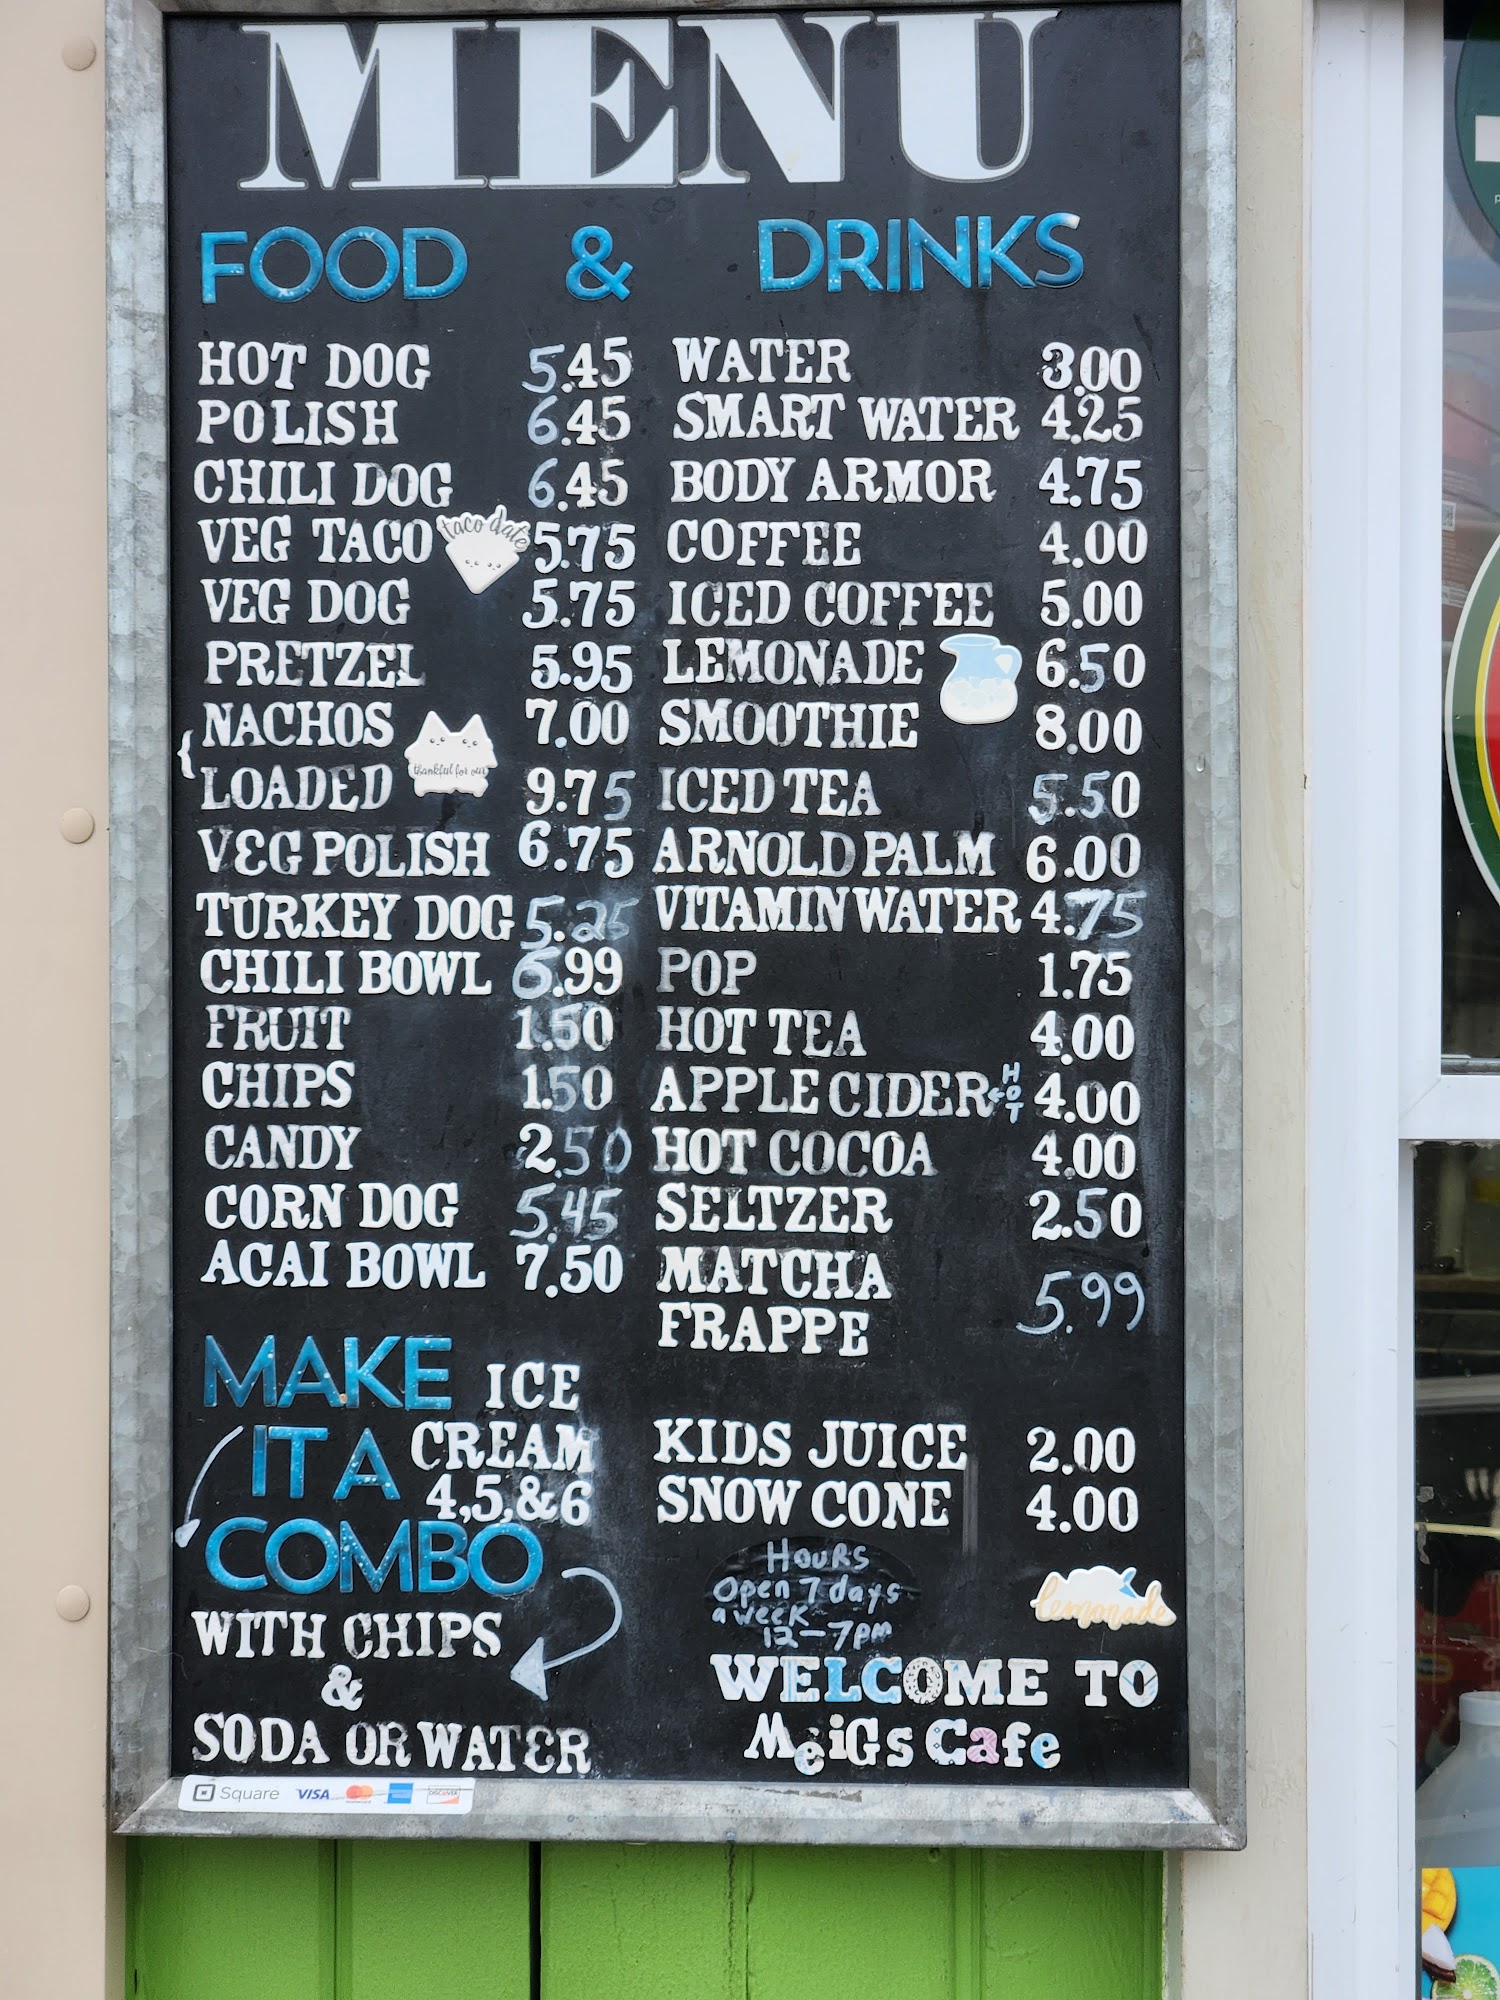 MENU
FOOD & DRINKS
HOT DOG 5.45
POLISH 6.45
CHILI DOG 6.45
VEG TACO 5.75
taco date
VEG DOG 5.75
PRETZEL 5.95
{ NACHOS 7.00
LOADED 9.75
thankful for our
VEG POLISH 6.75
TURKEY DOG 5.25
CHILI BOWL 6.99
FRUIT 1.50
CHIPS 1.50
CANDY 2.50
CORN DOG 5.45
ACAI BOWL 7.50
WATER 3.00
SMART WATER 4.25
BODY ARMOR 4.75
COFFEE 4.00
ICED COFFEE 5.00
LEMONADE 6.50
SMOOTHIE 8.00
ICED TEA 5.50
ARNOLD PALM 6.00
VITAMIN WATER 4.75
POP 1.75
HOT TEA 4.00
APPLE CIDER ← HOT 4.00
HOT COCOA 4.00
SELTZER 2.50
MATCHA
FRAPPE 5.99
KIDS JUICE 2.00
SNOW CONE 4.00
MAKE
IT A
COMBO
ICE
CREAM
4,5,&6
WITH CHIPS
&
SODA OR WATER
HOURS
Open 7 days
a week
12-7pm
lemonade
WELCOME TO
MeiGs Cafe
Square VISA mastercard DISCOVER